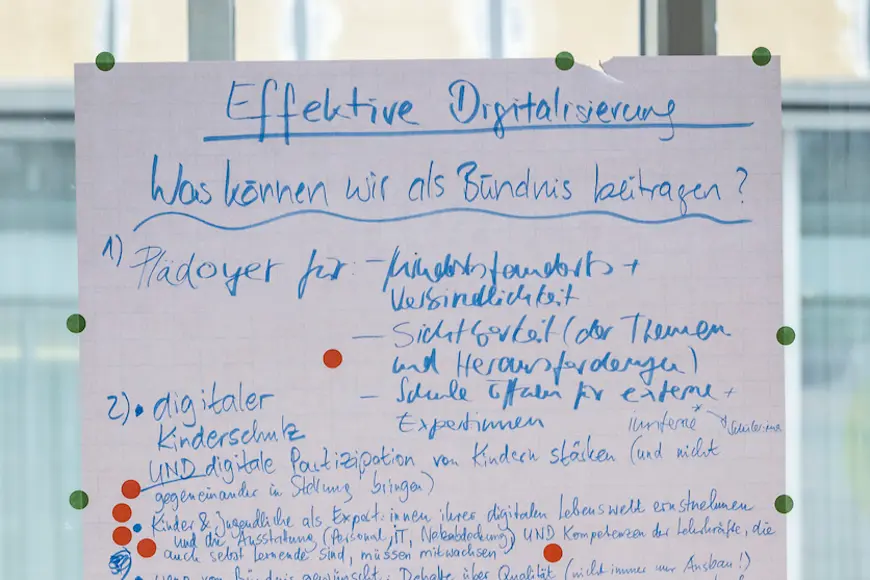 Effektive Digitalisierung
Was können wir als Bündnis beitragen?
1) Plädoyer für: - Mindeststandards +
Verbindlichkeit
- Sichtbarkeit (der Themen
und Herausforderungen)
- Schule öffnen für externe +
Expertinnen interne Schüler:innen
2) • digitaler
Kinderschutz
UND digitale Partizipation von Kindern stärken (und nicht
gegeneinander in Stellung bringen)
• Kinder & Jugendliche als Expert:innen ihrer digitalen Lebenswelt ernstnehmen
und die Ausstattung (Personal, IT, Netzabdeckung) UND Kompetenzen der Lehrkräfte, die
auch selbst Lernende sind, müssen mitwachsen
von Bündnis gewünscht: Debatte über Qualität (nicht immer nur Ausbau!)